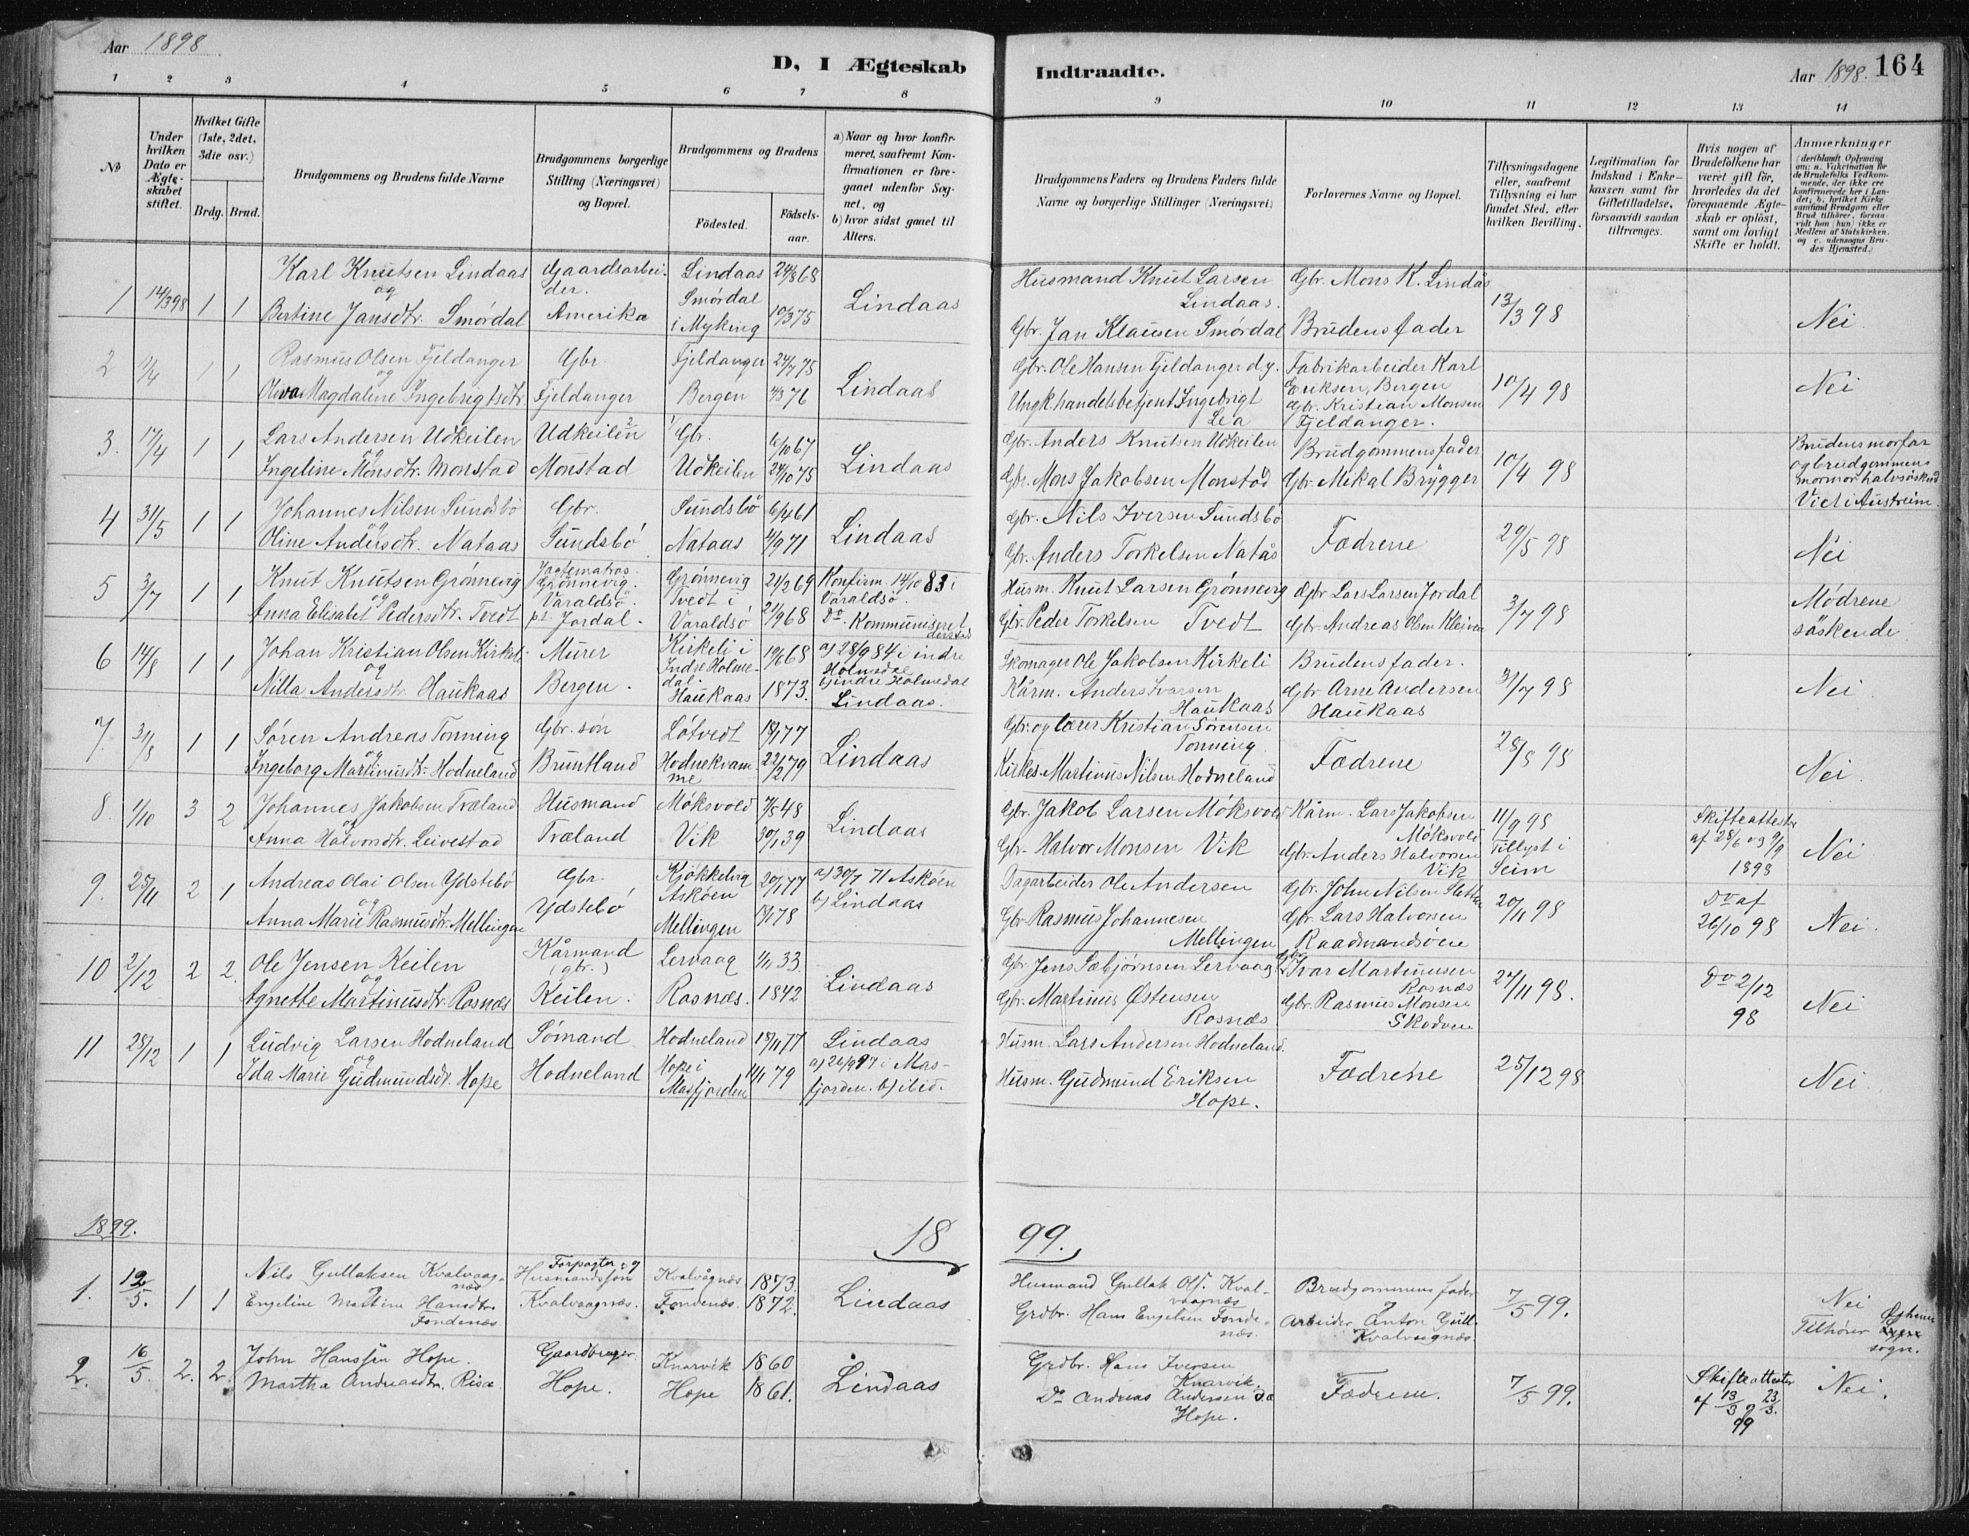 Aar 1898
D, I Ægteskab Indtraadte.
Aar 1898. 164
1 2 3 4 5 6 7 8 9 10 11 12 13 14
No
Under hvilken Dato er Ægteskabet stiftet.
Hvilket Gifte (1ste, 2det, 3die osv.)
Brdg. Brud.
Brudgommens og Brudens fulde Navne
Brudgommens borgerlige Stilling (Næringsvei) og Bopæl.
Brudgommens og Brudens
Födested. Födselsaar.
a) Naar og hvor konfirmeret, saafremt Konfirmationen er foregaaet udenfor Sognet, og
b) hvor sidst gaaet til Alters.
Brudgommens Faders og Brudens Faders fulde Navne og borgerlige Stillinger (Næringsvei)
Forlovernes Navne og Bopæl.
Tillysningsdagene eller, saafremt Tillysning ei har fundet Sted, efter hvilken Bevilling.
Legitimation for Indskud i Enkekassen samt for Giftetilladelse, forsaavidt saadan tiltrænges.
Hvis nogen af Brudefolkene har været gift för, hvorledes da det foregaaende Ægteskab er oplöst, samt om lovligt Skifte er holdt.
Anmerkninger
(deriblandt Oplysning om: a. Vakcination for de Brudefolks Vedkommende, der ikke ere konfirmerede her i Landet; b. hvilket Kirkesamfund Brudgom eller Brud tilhører, forsaavidt han (hun) ikke er Medlem af Statskirken, og c. udensogns Brudes Hjemsted.)
Karl Knutsen Lindaas Gaardsarbei- Lindaas 24/868 Husmand Knut Larsen Gbr. Mons K. Lindås
1 14/398 1 1 og der. Smørdal Lindaas Lindaas. 13/3 98
Bertine Jansdtr. Smørdal Amerika i Myking 10/375 Gbr. Jan Klausen Smørdal Brudens fader Nei.
2 11/4 1 1 Rasmus Olsen Fjeldanger Gbr. Fjeldanger 24/775 Lindaas Gbr. Ole Hansen Fjeldanger d.y. Fabrikarbeider Karl
og Eriksen, Bergen 10/4 98 Nei
Oleva Magdalene Ingebrigtsdtr Fjeldanger Bergen 4/3 76 Ungk. handelsbetjent Ingebrigt Gbr. Kristian Monsen
Lea Fjeldanger.
3. 17/4 1 1 Lars Andersen Udkeilen Udkeilen Gbr. 6/1067 Lindaas Gbr. Anders Knutsen Udkeilen Brudgommens fader 10/4 98 Brudens morfar
og og brudgommens
Ingeline Monsdtr. Monstad Monstad Udkeilen 24/1075 Gbr. Mons Jakobsen Monstad Gbr. Mikal Brygger mormor halvsöskend
Vier i Austreim.
4 31/5 1 1 Johannes Nilsen Sundsbö Gbr. Sundsbö 6/461 Lindaas Gbr. Nils Iversen Sundsbö Fædrene 29/5 98 Nei
og
Oline Andersdtr. Nataas Sundsbö Nataas 4/971 Gbr. Anders Torkelsen Natås
5 3/7 1 1 Knut Knutsen Grønnevig Jagtematros. Grønnevig 21/269 Konfirm. 14/10 83 i Husm. Knut Larsen Grønnevig Gbr Lars Larsen Jordal 3/7 98 Mødrene
og Grønnevig. Varaldsö Tvedt i Varaldsö. söskende
Anna Elisabet Pedersdtr. Tvedt pt. Jordal. Varaldsö 21/968 Do. Kommuniseret dersteds Gbr. Peder Torkelsen Tvedt Gbr Andreas Olsen Kleiven
6 14/8 1 1 Johan Kristian Olsen Kirkeli Murer Kirkeli i Indre Holmedal. 19/668 a) 28/984 i indre Holmedal Skomager Ole Jakobsen Kirkeli Brudens fader. 31/7 98 Nei
og b) indre Holmedal
Nilla Andersdtr. Haukaas Bergen. Haukaas 1873. Lindaas. Kårm. Anders Ivarsen Haukaas Gbr Arne Andersen Haukaas
7. 31/8 1 1 Søren Andreas Tonning Gbr. søn Løtvedt 18/177 Lindaas Gbr. og lærer Kristian Sørensen Tonning Fædrene 28/8 98 Nei.
og
Ingeborg Martinusdtr. Hodneland Bruntland Hodnekvamme 22/279 Kirkes. Martinus Nilsen Hodneland
8. 1/10 3 2 Johannes Jakobsen Træland Husmand Møksvold 7/548 Lindaas Gbr. Jakob Larsen Møksvold Kårm. Lars Jakobsen Møksvold 11/9 98 Skifteattester
og Tillyst i af 28/6 og 9/9 Nei
Anna Halvorsdtr. Leivestad Træland Vik 30/139 Gbr. Halvor Monsen Vik Gbr. Anders Halvorsen Vik Seim 1898
9. 25/11 2 1 Andreas Olai Olsen Ydstebö Gbr. Kjøkkelvig Askøen 20/177 a) 30/7 71 Askøen Dagarbeider Ole Andersen Gbr. John Nilsen 20/11 98 Do af
og b) Lindaas Nei.
Anna Marie Rasmusdtr. Mellingen Ydstebö Mellingen 178 Gbr. Rasmus Johannesen Mellingen Gbr. Lars Halvorsen Raadmandsöen 26/10 98
10 2/12 2 2. Ole Jensen Keilen Kårmand (gbr.) Lervaag 1/1 33. Lindaas Gbr. Jens Sæbjørnsen Lervaag Gbr Ivar Martinusen Rosnæs 27/11 98. Do 2/12
og 98 Nei
Agnette Martinusdtr. Rosnæs Keilen. Rosnæs. 1842 Gbr. Martinus Østensen Rosnæs Gbr. Rasmus Monsen Skodven
11 28/12 1 1 Ludvig Larsen Hodneland Sømand Hodneland 18/1177 Lindaas Husm. Lars Andersen Hodneland. Fædrene 25/12 98 Nei
og a) 26/9 97 i Mas-
Ida Marie Gudmundsdt. Hope Hodneland Hope i Masfjorden 11/179 fjorden. b) ibid. Husm. Gudmund Eriksen Hope.
1899. 18 99.
1. 12/5. 1 1 Nils Gullaksen Kvalvaagnæs Forpagter og Husmandssøn Kvalvågnæs 1873. Lindaas Husmand Gullak Ols. Kvalvaagnæs Brudgommens fader 7/5 99. Nei
Engeline Martina Hansdtr. Fondenæs Kvalvaagnæs. Fondenæs. 1872. Grdbr. Hans Engelsen Fondenæs. Arbeider Anton Gull. Kvalvaagnæs. Tilhører sogn.
2. 16/5. 2. 2. John Hanssen Hope. Gaardbruger. Knarvik 1860 Lindaas Grdbr. Hans Iversen Knarvik. Fædrene. 7/5 99. Skifteattester
Martha Andreasdtr. Risa Hope. Hope 1861. Do Andreas Andersen Hope. af 13/3 og 23/3. 99 Nei.